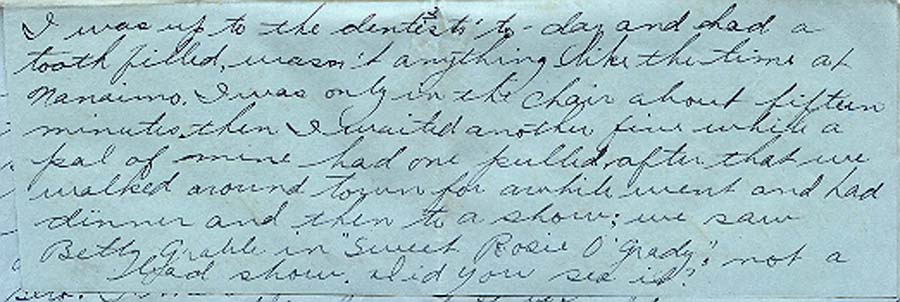 I was up to the dentists' to-day and had a
tooth filled, wasn't anything like the time at
Nanaimo. I was only in the chair about fifteen
minutes, then I waited another five while a
pal of mine had one pulled, after that we
walked around town for awhile went and had
dinner and then to a show; we saw
Betty Grable in "Sweet Rosie O'Grady"; not a
bad show. Did you see it?